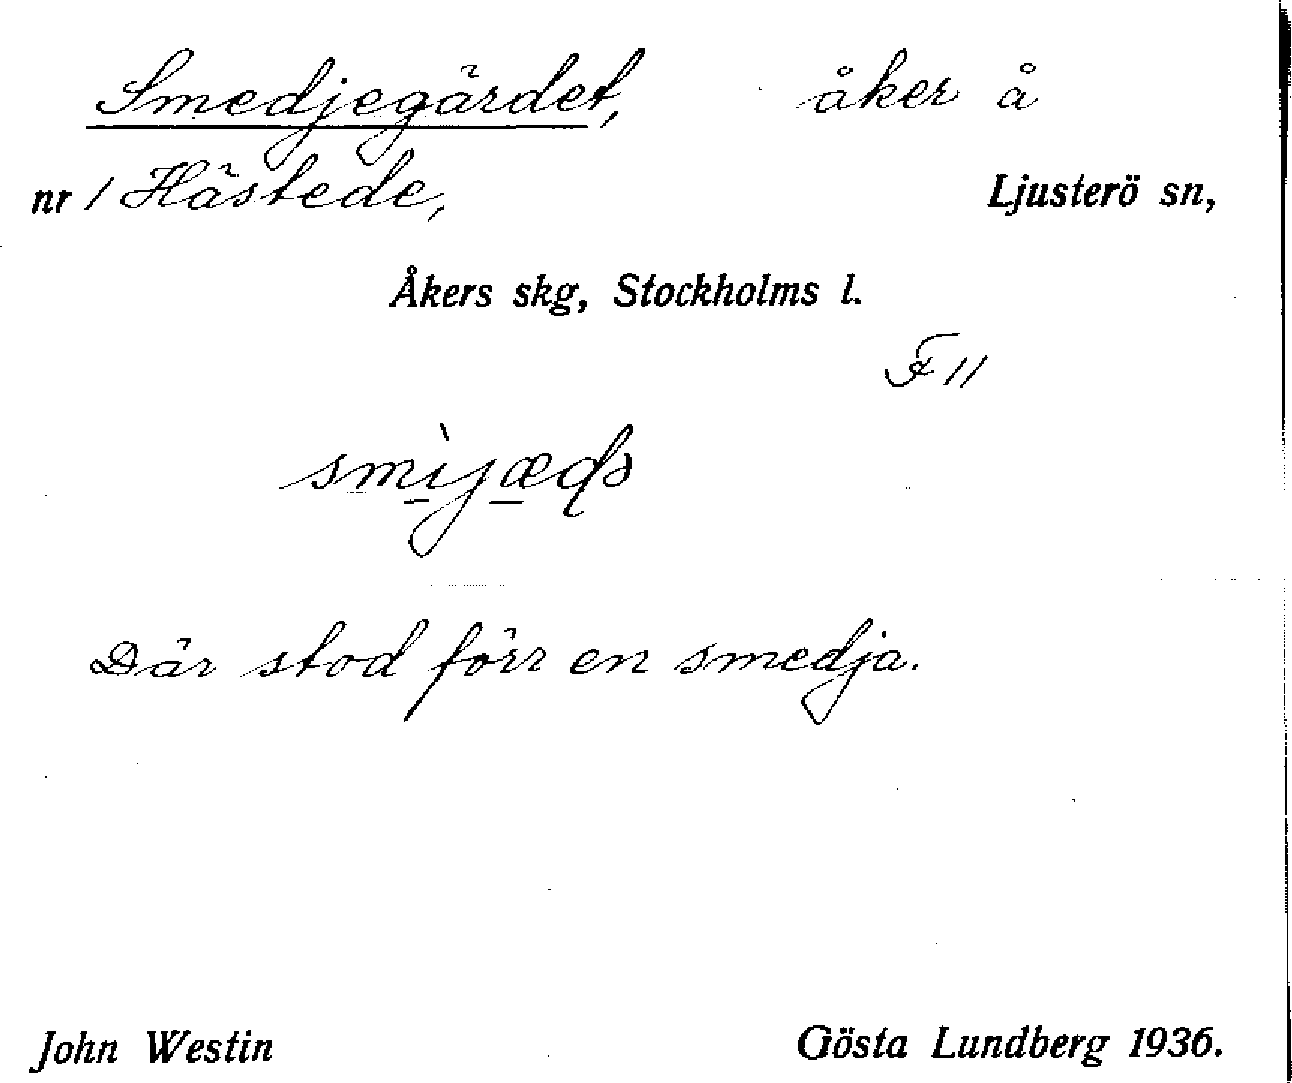 Smedjegärdet, åker å
nr 1 Hästede, Ljusterö sn,
Åkers skg, Stockholms l.
F 11
Där stod förr en smedja.
John Westin Gösta Lundberg 1936.